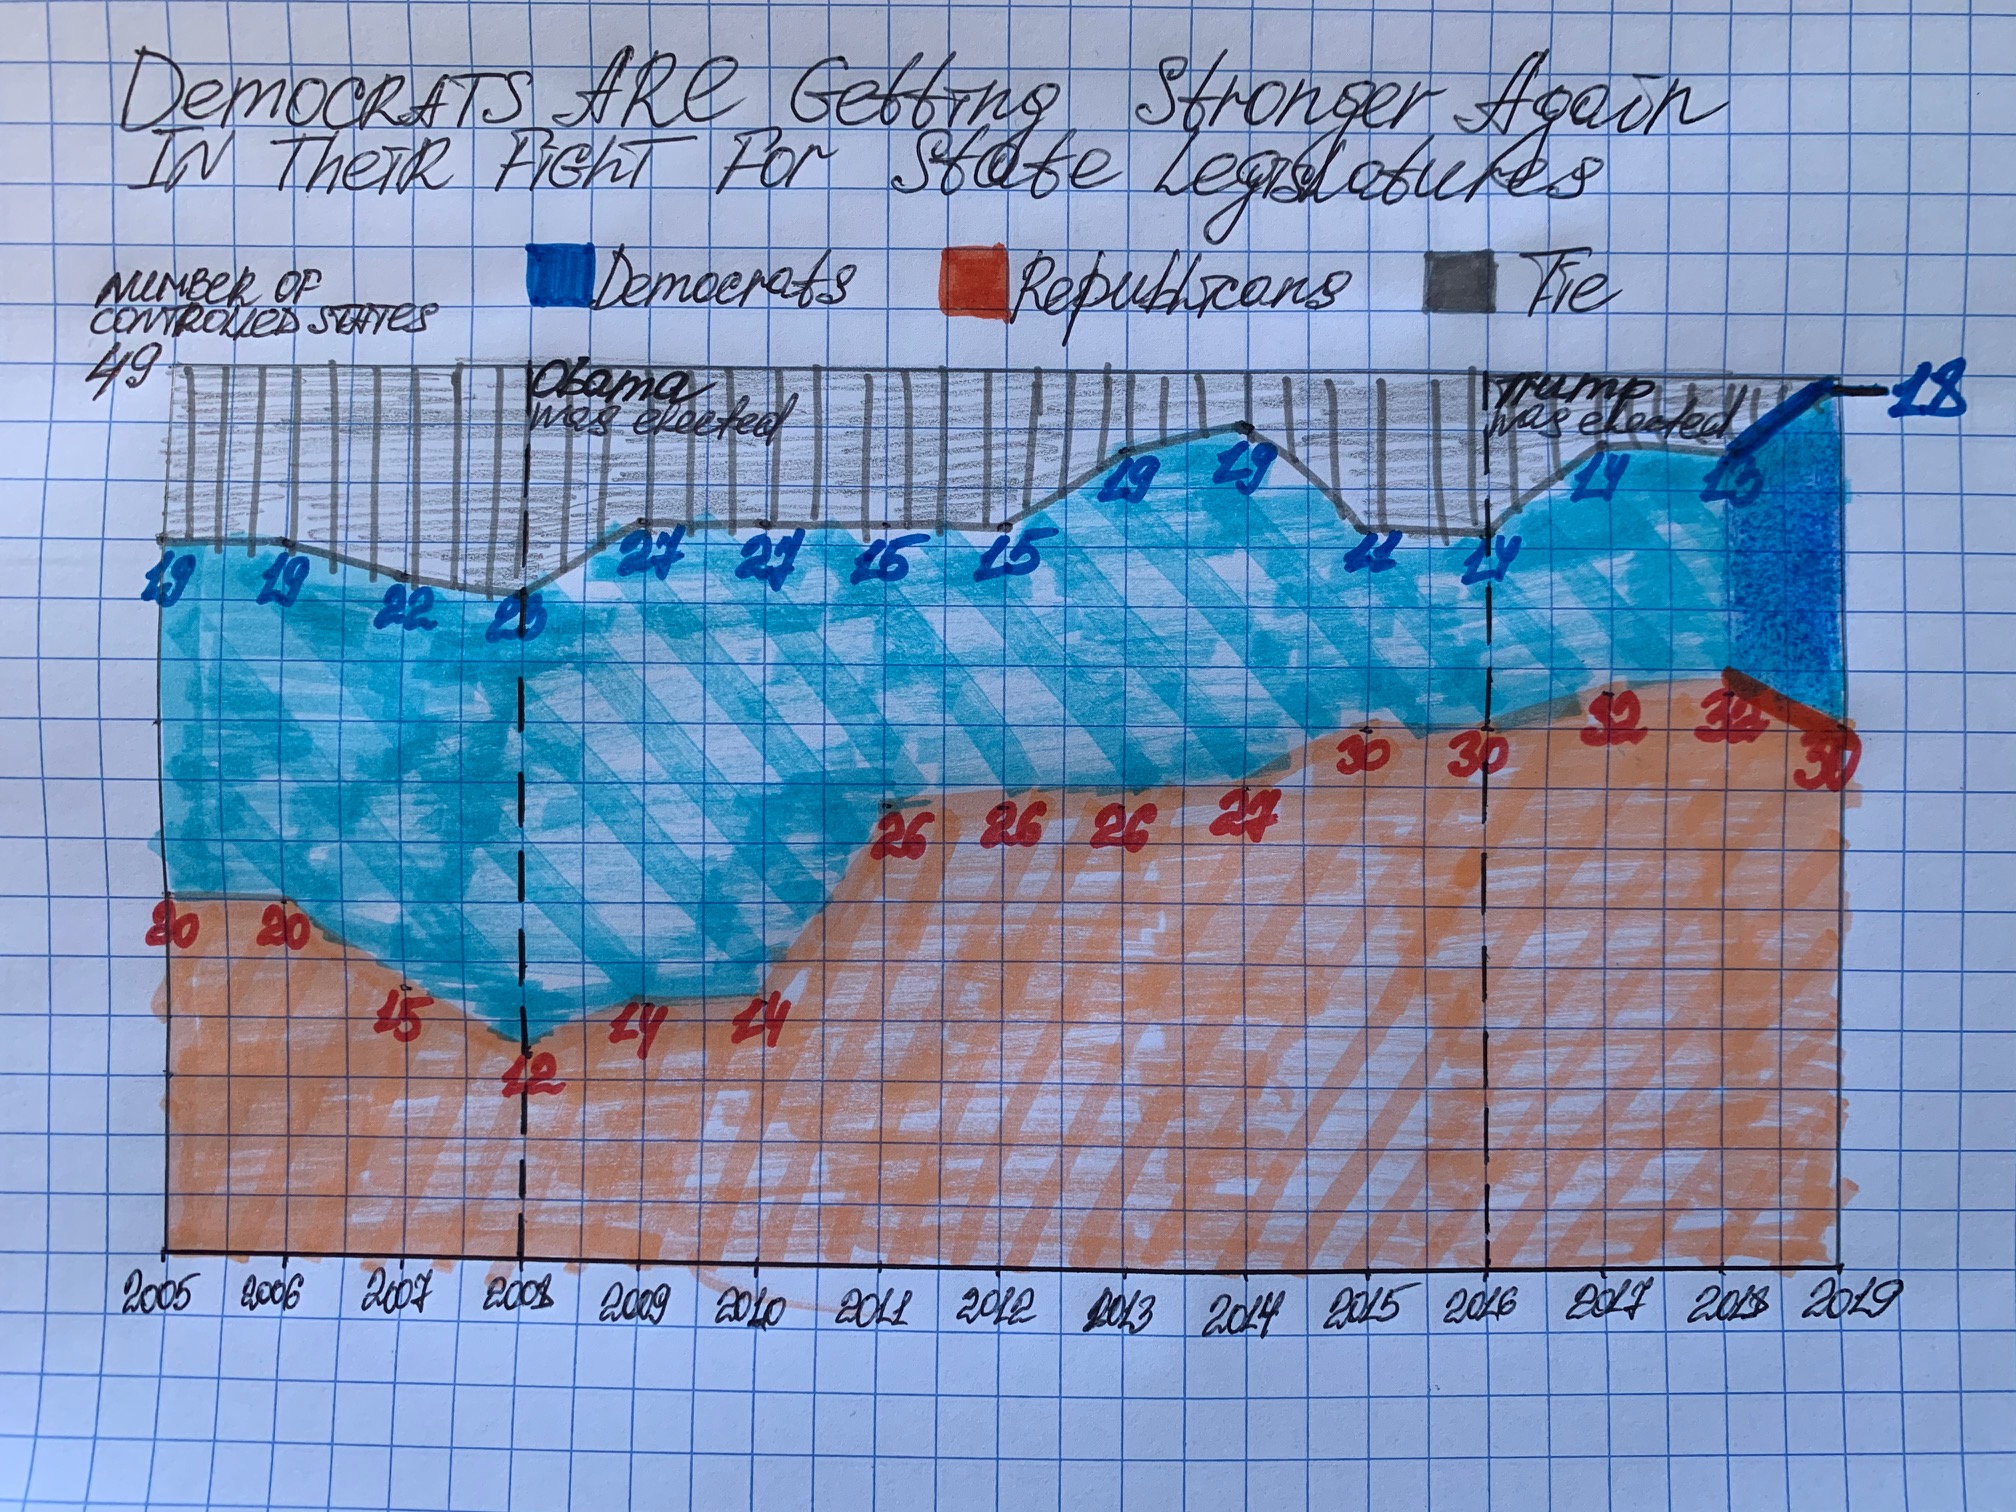 Democrats are Getting Stronger Again
In Their Fight For State Legislatures
Democrats Republicans Tie
Number of
controlled states
49
Obama
was elected
Trump
was elected
18
19 19 22 23 27 27 15 19 19 11 14 14
20 20 15 12 14 14 26 26 26 27 30 30 32 32 30
2005 2006 2007 2008 2009 2010 2011 2012 2013 2014 2015 2016 2017 2018 2019